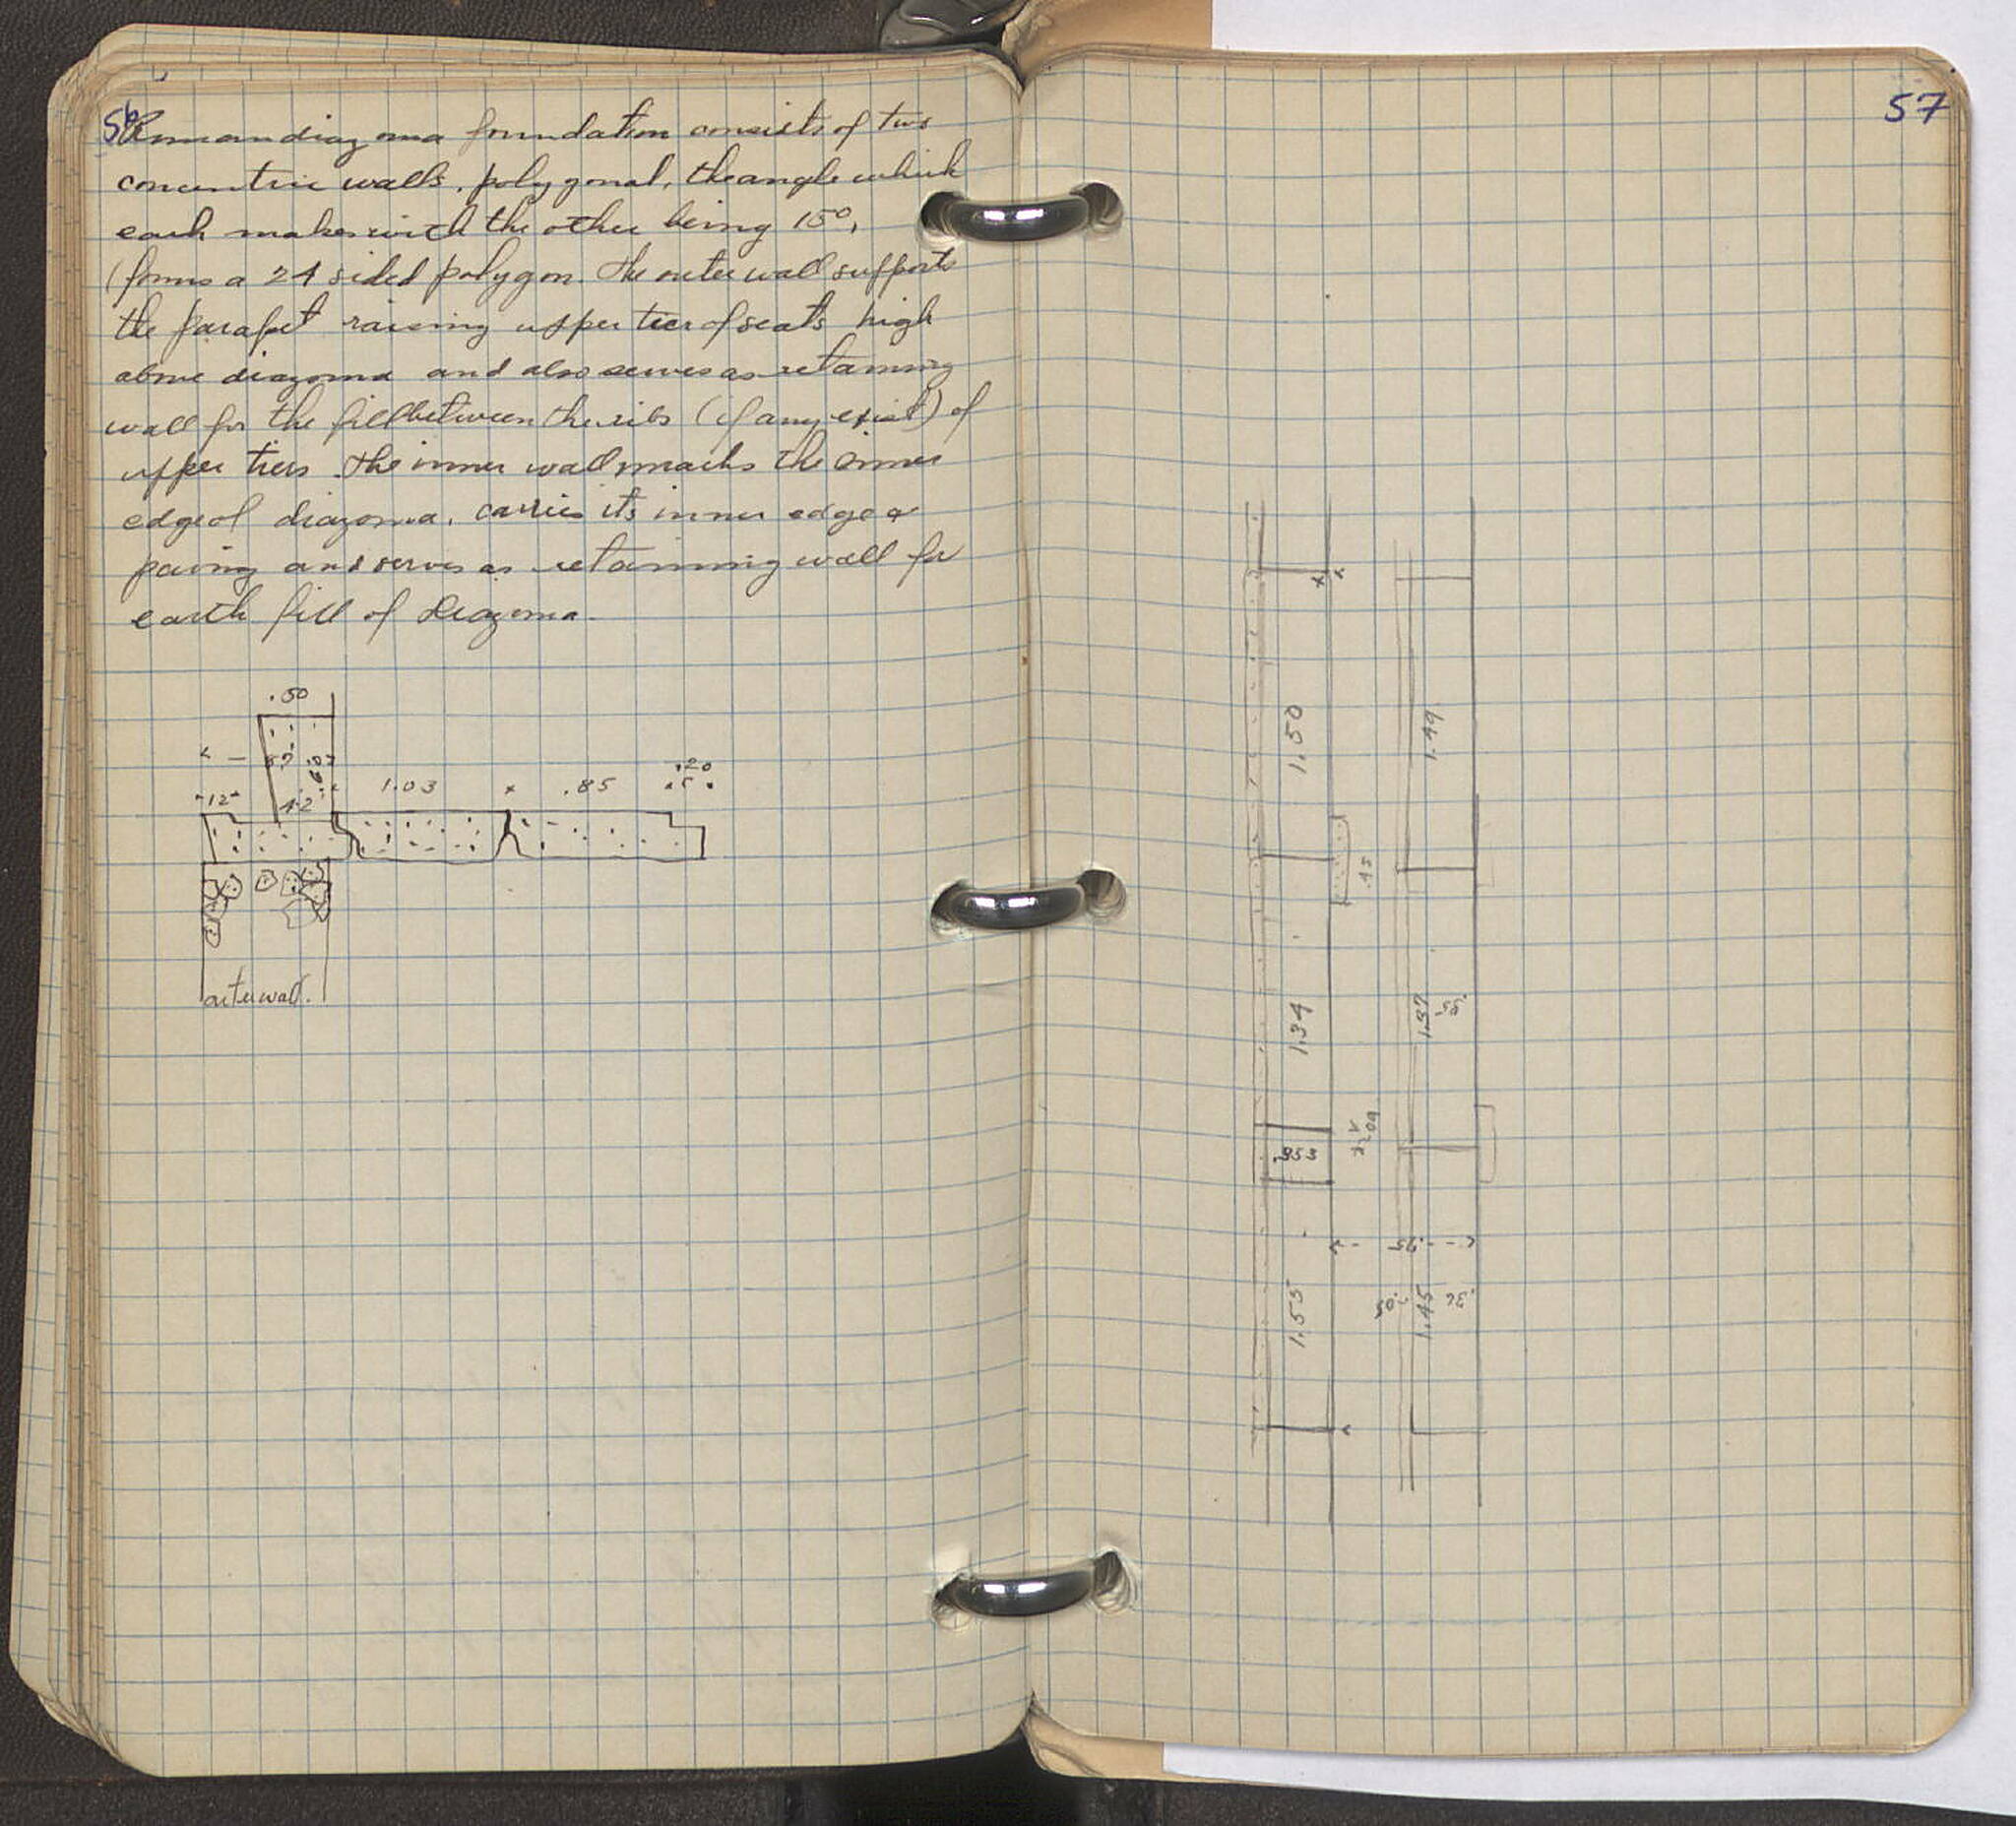 56
Roman diazoma foundation consists of two
concentric walls, polygonal, the angle which
each makes with the other being 15°,
(forms a 24 sided polygon. The outer wall supports
the parapet raising upper tier of seats high
above diazoma and also serves as retaining
wall for the fill between the ribs (if any exist) of
upper tiers. The inner wall marks the inner
edge of diazoma, carries its inner edge &
paving and serves as retaining wall for
earth fill of diazoma.
.50
.07
.12
.42
1.03
.85
.20
.5
outer wall.
57
1.50
1.49
.45
1.34
1.37
.35
.353
.09
.75
1.55
.05
1.45
.36